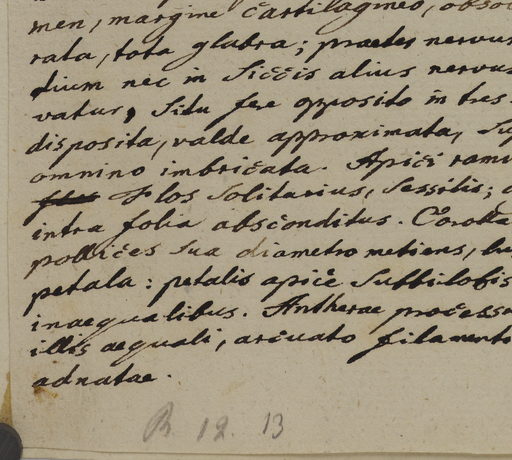 men, margine cartilagineo, obso
rata, tota glabra; praeter nervum
dium nec in siccis alius nervus
vatur, Situ fere opposito in tres
disposita, valde approximata, Su
omnino imbricata. Apici ramu
Flos Solitarius, Sessilis; c
intra folia absconditus. Corolla
pollices sua diametro metiens, lu
petala: petalis apice Subbilobis
inaequalibus. Antherae processu
illis aequali, arcuato filamento
adnatae.
B. 12. 13